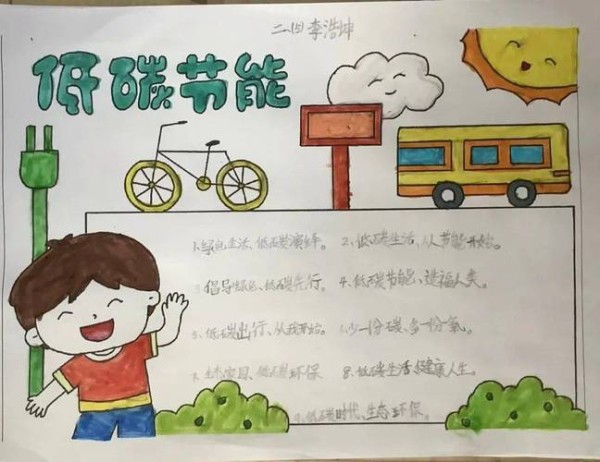 二(5)李浩坤
低碳节能
1.绿色生活、低碳演绎。 2、低碳生活、从节能开始。
3.倡导绿色、低碳先行。 4.低碳节能、造福人类。
5.低碳出行、从我开始。 6.少一份碳、多一份氧。
7.生态家园、低碳环保 8.低碳生活、健康人生。
9.低碳时代、生态环保。